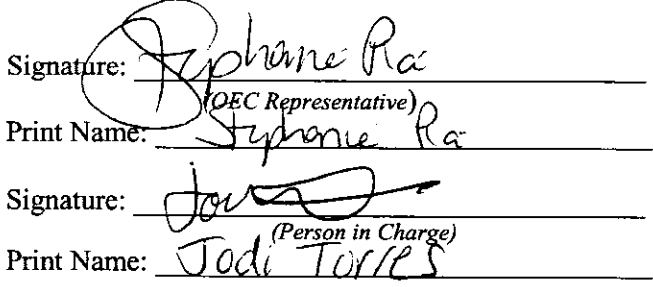 Signature: Stephanie Ra
(OEC Representative)
Print Name: Stephanie Ra
Signature:
(Person in Charge)
Print Name: Jodi Torres